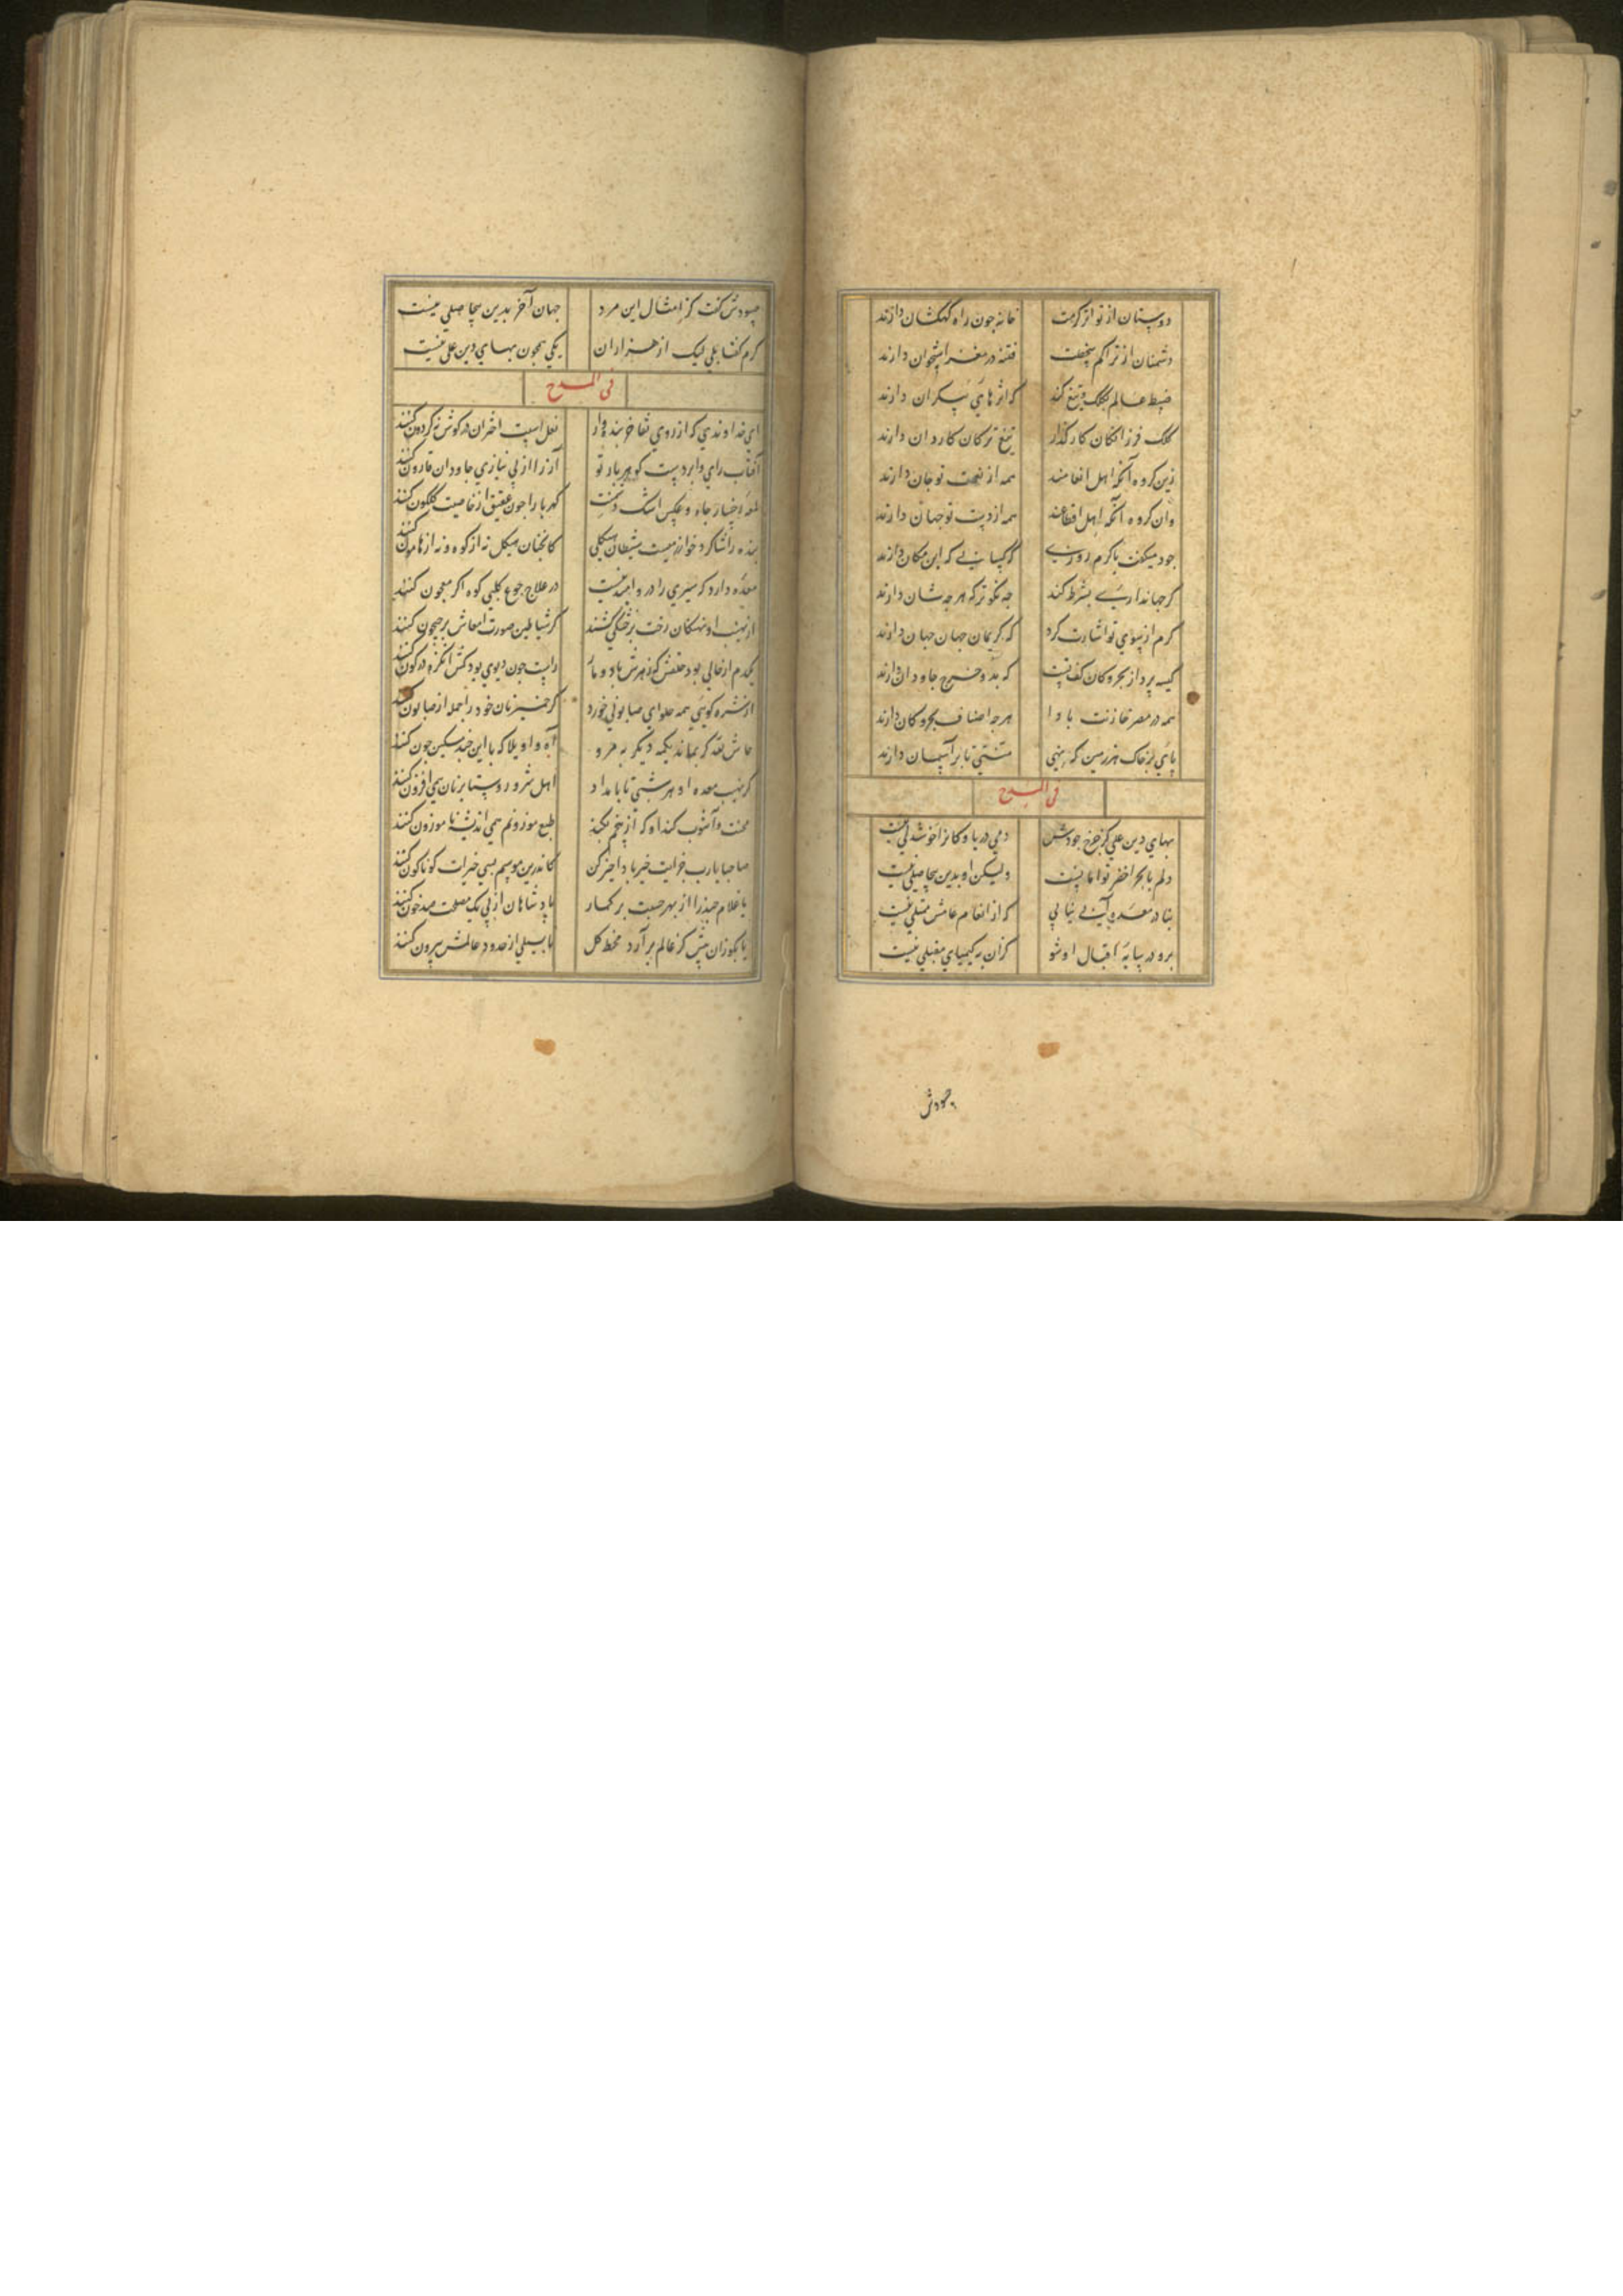 دوستان از تو اثر کرمت خانه چون راه کهکشان دارند
دشمنان از تراکم سخطت فتنه در مغز استخوان دارند
ضبط عالم بکلک و تیغ کند که اثرهای بیکران دارند
کلک فرزانکان کارکذار تیغ ترکان کاردان دارند
زین کروه آنکه اهل انعامند همه از نعمت تو جان دارند
وان کروه آنکه اهل اقطاعند همه از دست تو جهان دارند
جود میکفت با کرم روزی کو کسانی که این مکان دارند
کر جهانداریی بشرط کند چه نکوتر که هرچه شان دارند
کرم از سوی تو اشارت کرد که کریمان جهان جهان دارند
کیسه پرداز بحر و کان کف تست که بدو خرج جاودان دارند
همه در مصر خازنت بادا هرچه اصناف بحر و کان دارند
پای بر خاک هر زمین که نهی منتی تا بر آسمان دارند
فی المدح
بهای دین علی کز خرج جودش دمی دریا و کانرا خوشدلی نیست
دلم با بحر اخضر تواما نیست ولیکن او بدین بیحاصلی نیست
بنا در معده بی نیانی که از انعام عامش ممتلی نیست
برو در سایه اقبال او شو کزان به کیمیای مقبلی نیست
جودش
جودش کفت کز امثال این مرد جهان آخر بدین بیحاصلی نیست
کرم کفتا بلی لیک از هزاران یکی همچون بهای دین علی نیست
فی المدح
ای خداوندی که از روی تفاخر بنده وار نعل اسبت اختران در کوش کردون کنند
آفتاب رای و ابر دست کوهربار تو آز را از بی نیازی جاودان قارون کنند
جاه و عکس اشک کهربا را چون عقیق از خاصیت کلکون کنند
بنده را شاکرد خوانی هست شیطان هیکلی کانچنان هیکل نه از کوه و نه از هامون کنند
معده دارد که سیری را درو امید نیست در علاج جوع کلبی کوه اکر معجون کنند
از نهیب او نهنکان رخت بر خشکی کشند کر شیاطین صورت امعاش بر جیحون کنند
یکدم از خالی بود حلقش کوز هرش باد و مار راست چون دیوی بود کش
کویی همه حلوای صابونی خورد کر خمیر نان خود را جمله از صابون کنند
حاش لله کر بماند یکمه دیکر به مرو آه و اویلا که با این خبه مسکین چون کنند
کز نهیب معده او هر شبی تا بامداد اهل مرو و روستا بر نان همی افزون کنند
محنت و آشوب کند او که طبع موزونم همی اندیشه ناموزون کنند
صاحبا یارب خرابت خیر با داخیر کن کاندرین موسم بسی خیرات کوناکون کنند
یا غلام چند را از بهر حسبت برکمار پادشاهان از پی یک مصلحت صد خون کنند
یا بکو زان پیش کز عالم برآرد قحط کل تا بسیلی از حدود عالمش بیرون کنند